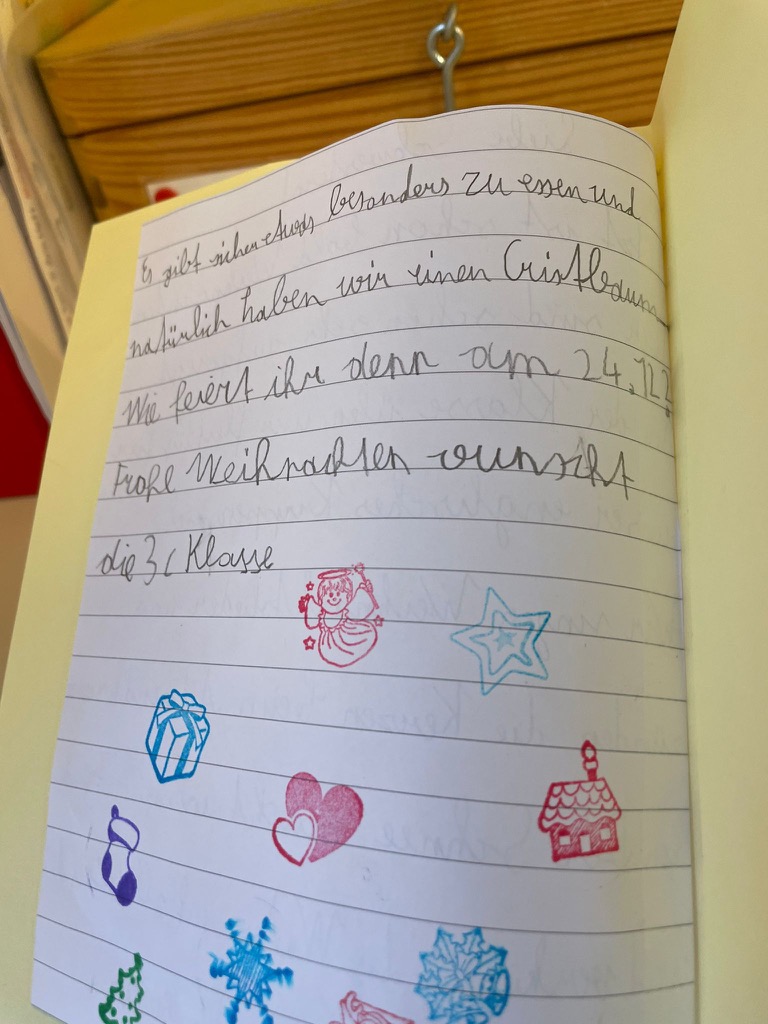 Es gibt sicher etwas besonders zu essen und
natürlich haben wir einen Cristbaum
Wie feiert ihr denn am 24.12?
Frohe Weihnachten wunscht
die 3c Klasse